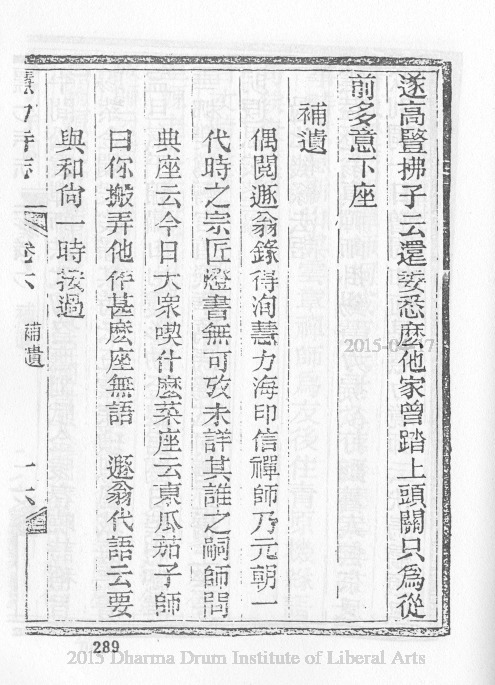 遂高豎拂子云還委悉麼他家曾踏上頭關只為從
前多意下座
補遺
偶閱遯翁錄得洵慧力海印信禪師乃元朝一
代時之宗匠燈書無可攷未詳其誰之嗣師問
典座云今日大衆喫什麼菜座云東瓜茄子師
曰你搬弄他作甚麽座無語　遯翁代語云要
與和尙一時按過
慧力寺志　卷六　補遺　十六
289
2015 Dharma Drum Institute of Liberal Arts